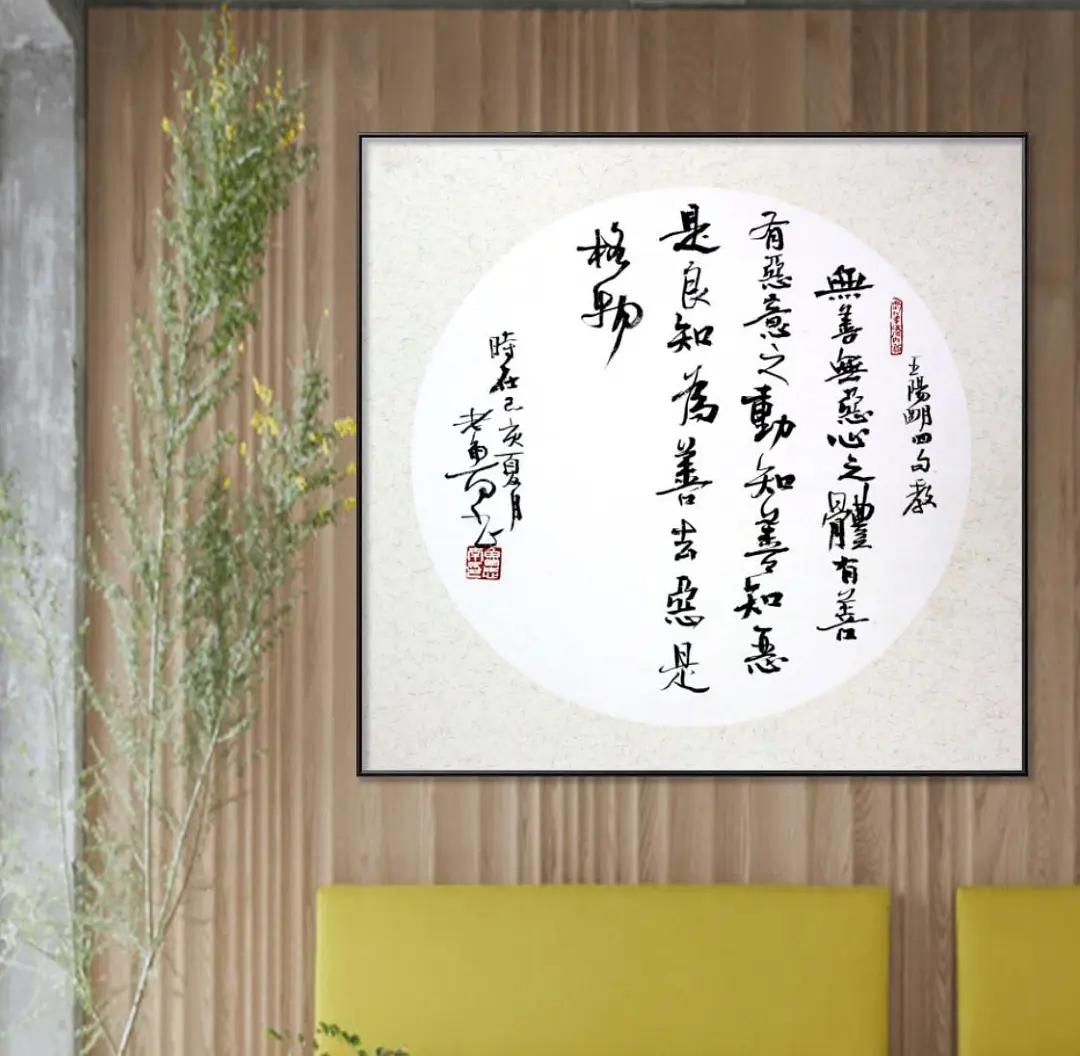 王陽明四句教
無善無惡心之體有善
有惡意之動知善知惡
是良知為善去惡是
格物
時在己亥夏月